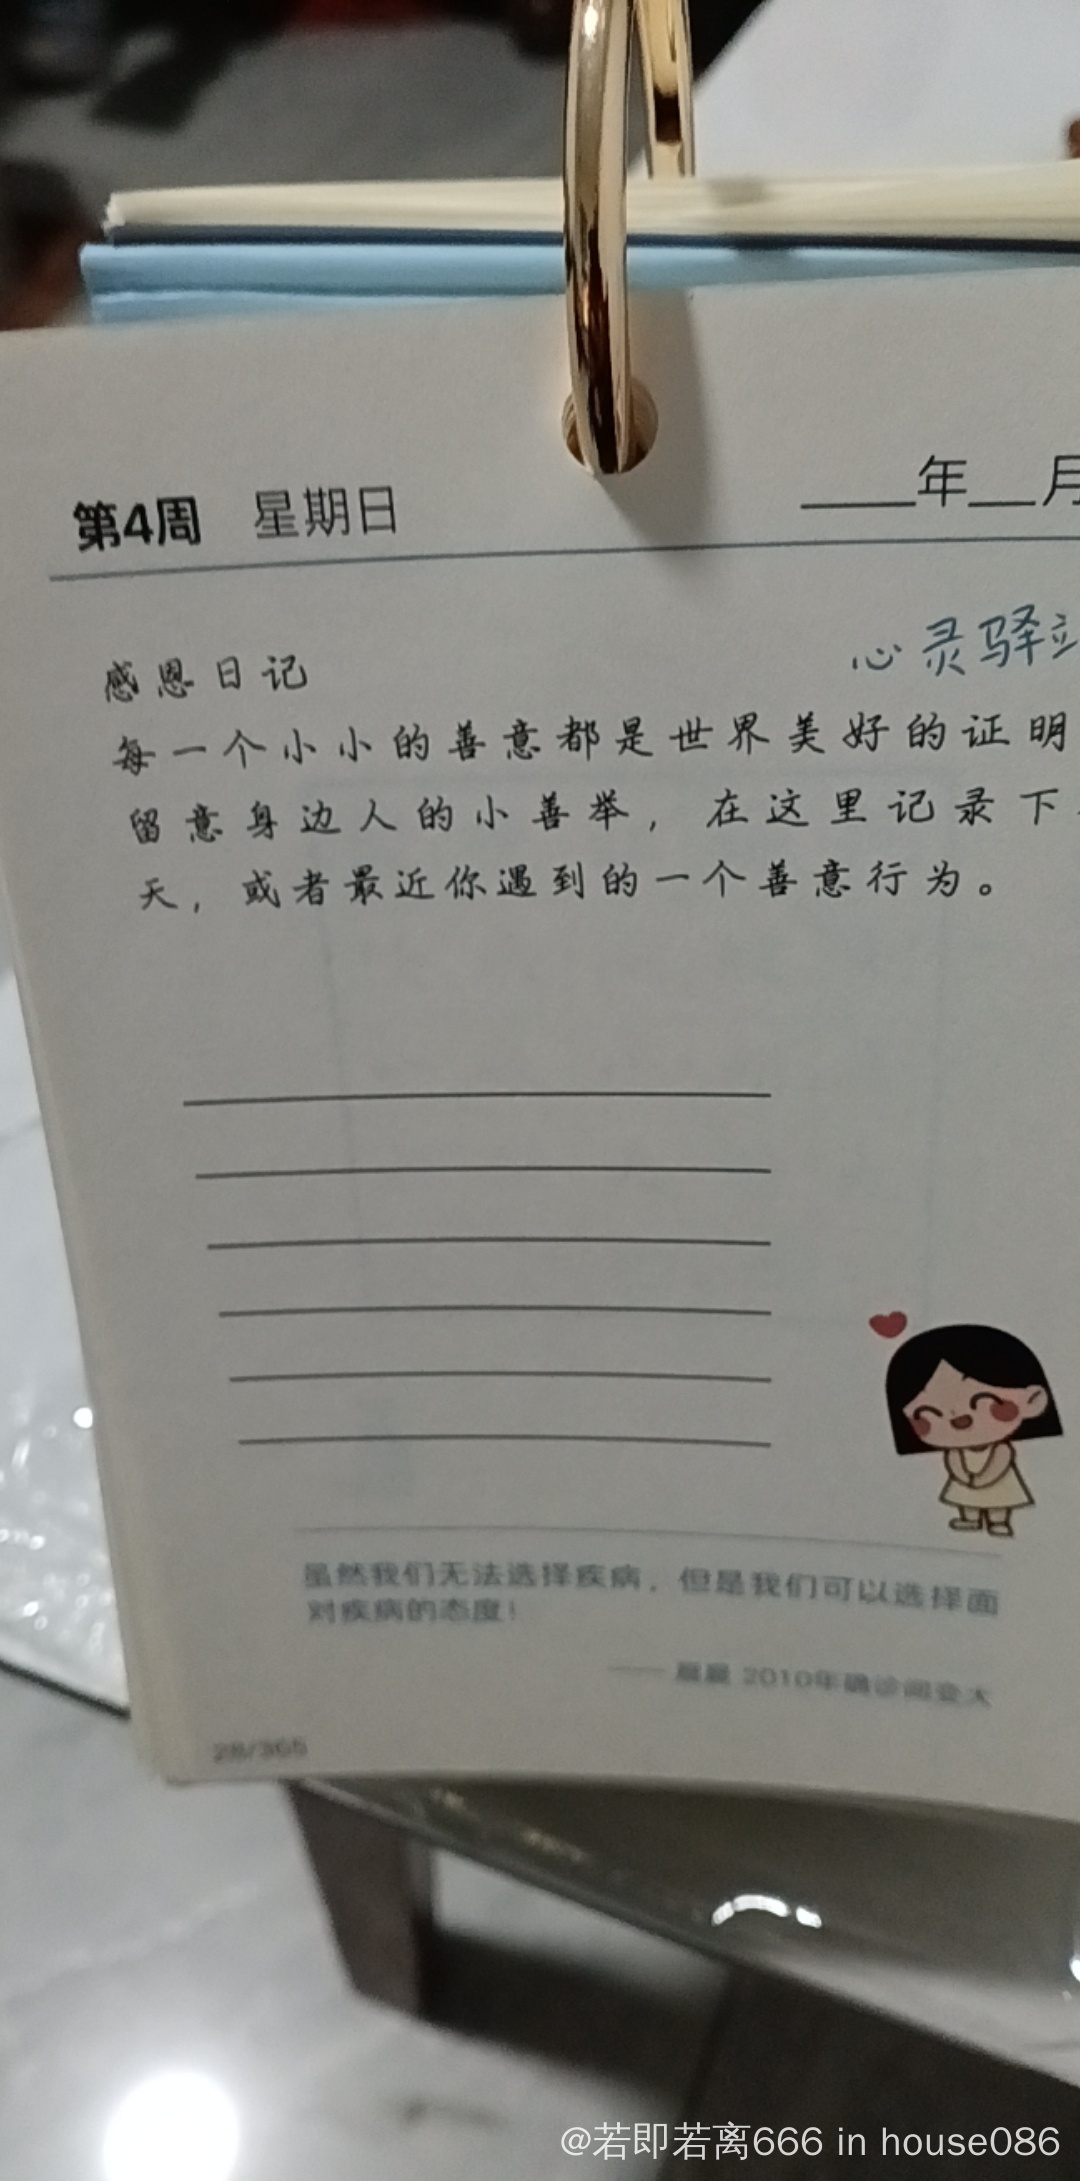 第4周 星期日 ____年__月
心灵驿站
感恩日记
每一个小小的善意都是世界美好的证明
留意身边人的小善举，在这里记录下
天，或者最近你遇到的一个善意行为。
虽然我们无法选择疾病，但是我们可以选择面
对疾病的态度！
—— 晨晨 2010年确诊间变大
28/365
@若即若离666 in house086